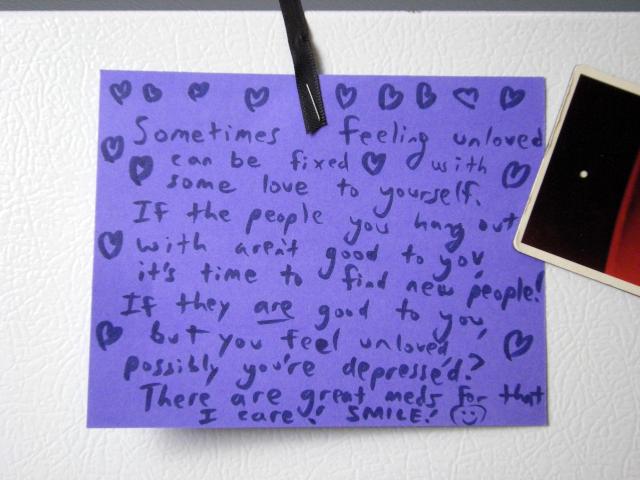 Sometimes feeling unloved
can be fixed with
some love to yourself.
If the people you hang out
with aren't good to you,
it's time to find new people!
If they are good to you,
but you feel unloved,
possibly you're depressed?
There are great meds for that
I care! SMILE!